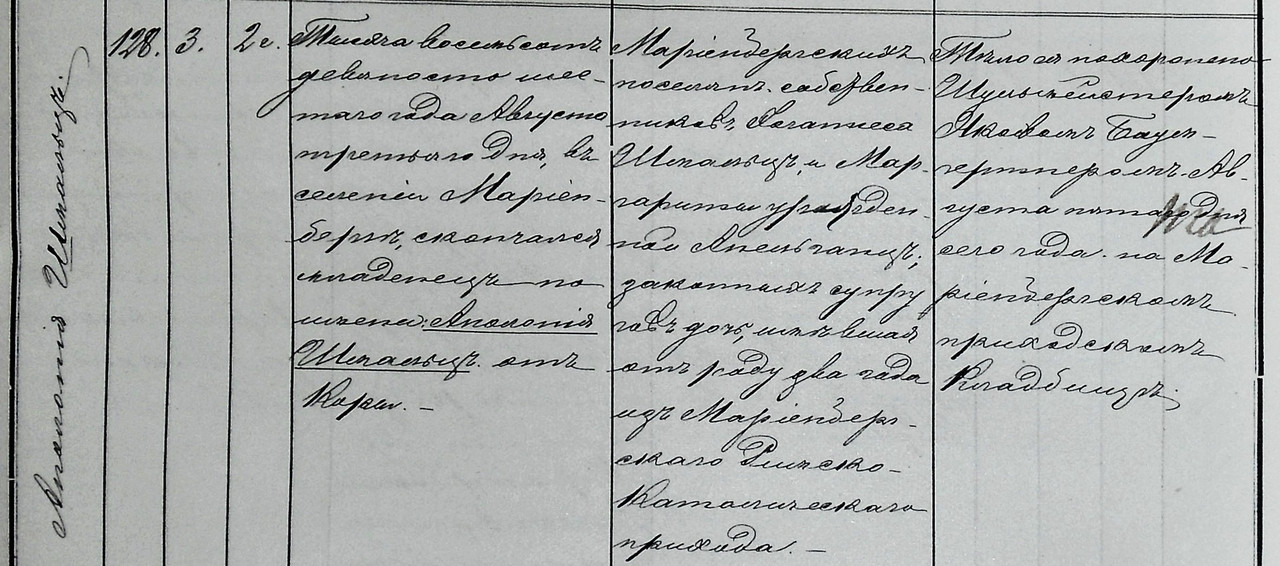 Аполонія Шмальцъ.
128.
3.
2 г.
Тысяча восемьсотъ
девяносто шес-
таго года Августа
третьяго дня, въ
селеніи Маріен-
бергъ, скончался
младенецъ по
имени: Аполонія
Шмальцъ. отъ
Кори. —
Маріенбергскихъ
поселянъ собствен-
никовъ, Іоганнеса
Шмальцъ, и Мар-
гариты урожден-
ной Апельганцъ;
законныхъ супру
говъ дочь, имѣвшая
отъ роду два года
изъ Маріенберг-
скаго Римско-
Католическаго
прихода. —
Тѣло ея похоронено
Шульмейстеромъ
Яковомъ Баум-
гертнеромъ. Ав-
густа пятаго дня
сего года. на Ма-
ріенбергскомъ
приходскомъ
Кладбищѣ.